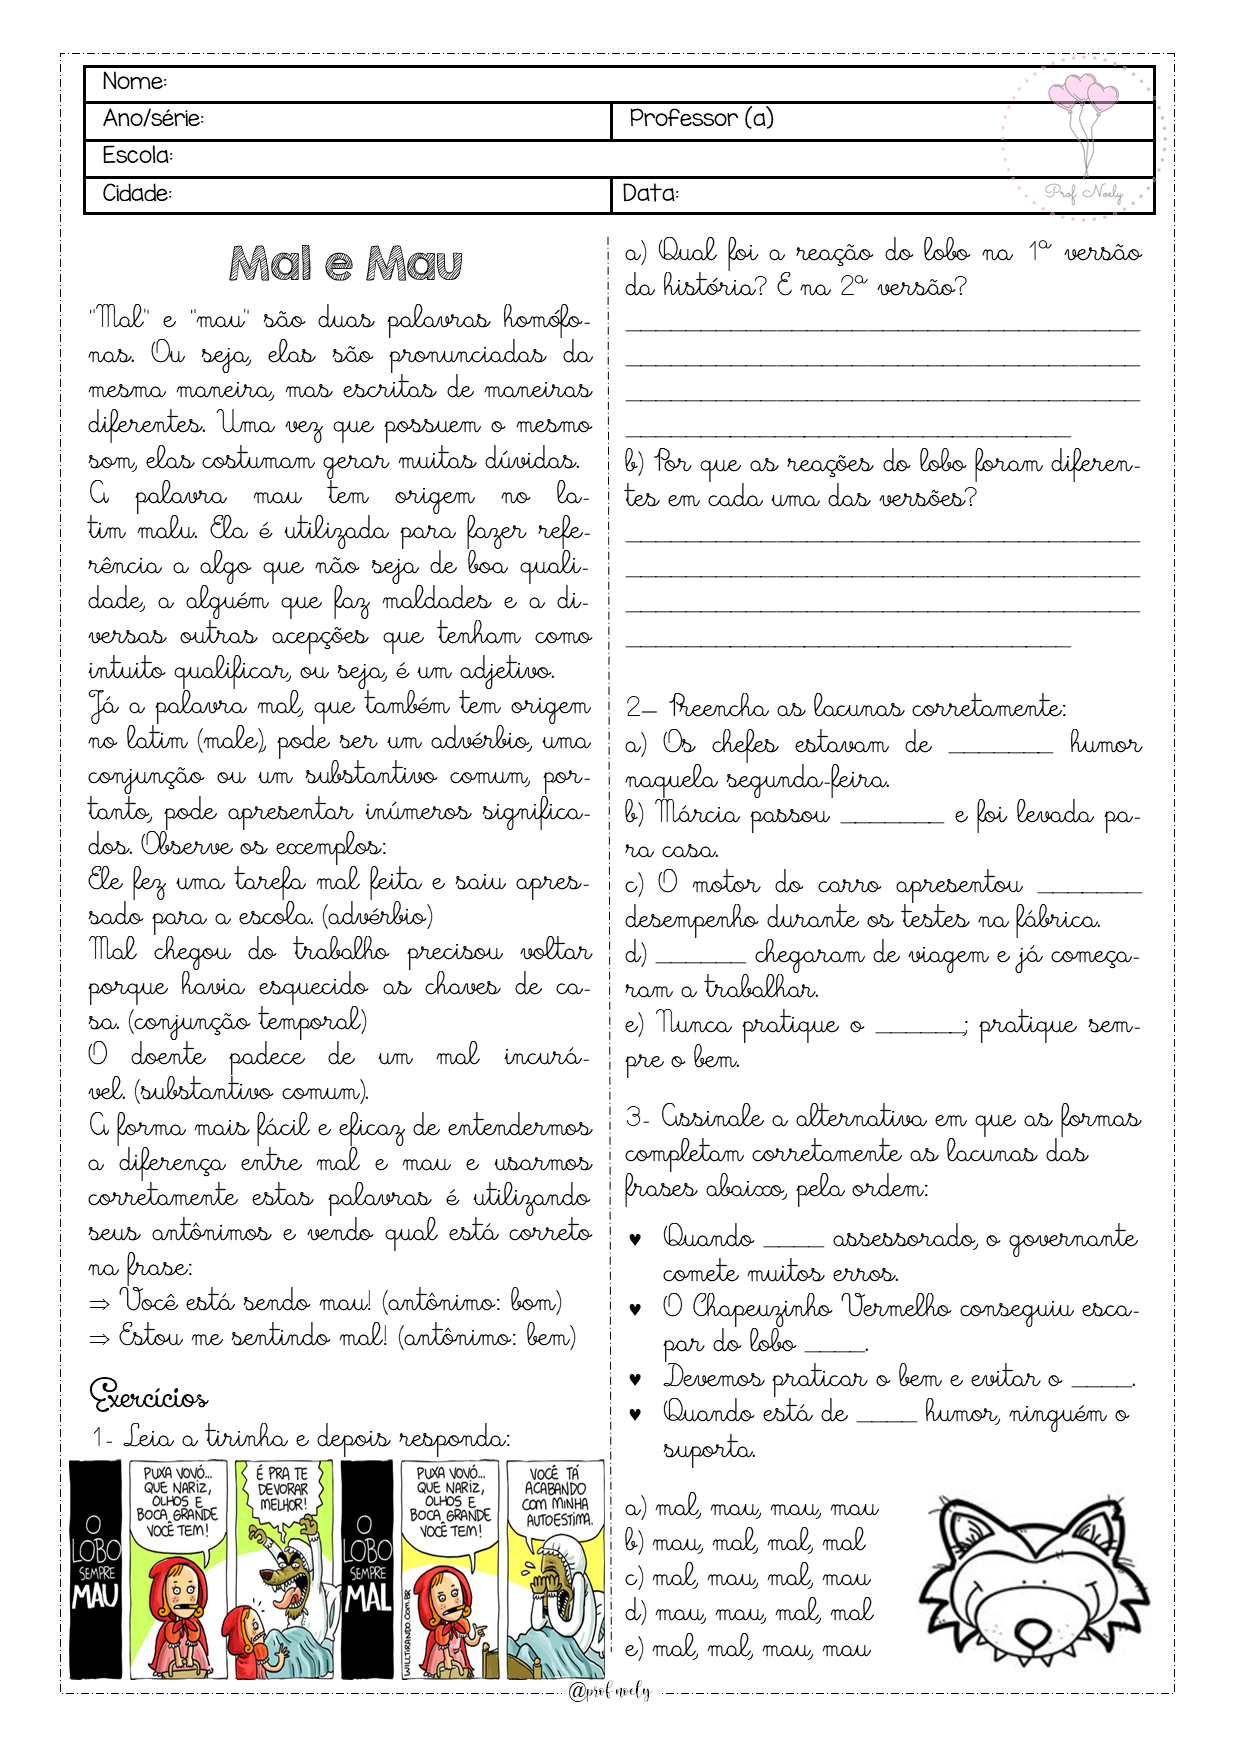 Nome:
Ano/série:
Professor (a)
Escola:
Cidade:
Data:
Prof. Noely
Mal e Mau
"Mal" e "mau" são duas palavras homófo-
nas. Ou seja, elas são pronunciadas da
mesma maneira, mas escritas de maneiras
diferentes. Uma vez que possuem o mesmo
som, elas costumam gerar muitas dúvidas.
A palavra mau tem origem no la-
tim malu. Ela é utilizada para fazer refe-
rência a algo que não seja de boa quali-
dade, a alguém que faz maldades e a di-
versas outras acepções que tenham como
intuito qualificar, ou seja, é um adjetivo.
Já a palavra mal, que também tem origem
no latim (male), pode ser um advérbio, uma
conjunção ou um substantivo comum, por-
tanto, pode apresentar inúmeros significa-
dos. Observe os exemplos:
Ele fez uma tarefa mal feita e saiu apres-
sado para a escola. (advérbio)
Mal chegou do trabalho precisou voltar
porque havia esquecido as chaves de ca-
sa. (conjunção temporal)
O doente padece de um mal incurá-
vel. (substantivo comum).
A forma mais fácil e eficaz de entendermos
a diferença entre mal e mau e usarmos
corretamente estas palavras é utilizando
seus antônimos e vendo qual está correto
na frase:
⇒ Você está sendo mau! (antônimo: bom)
⇒ Estou me sentindo mal! (antônimo: bem)
Exercícios
1- Leia a tirinha e depois responda:
O
LOBO
SEMPRE
MAU
PUXA VOVÓ...
QUE NARIZ,
OLHOS E
BOCA GRANDE
VOCÊ TEM!
É PRA TE
DEVORAR
MELHOR!
O
LOBO
SEMPRE
MAL
PUXA VOVÓ...
QUE NARIZ,
OLHOS E
BOCA GRANDE
VOCÊ TEM!
VOCÊ TÁ
ACABANDO
COM MINHA
AUTOESTIMA.
WILLTIRANDO.COM.BR
a) Qual foi a reação do lobo na 1ª versão
da história? E na 2ª versão?
b) Por que as reações do lobo foram diferen-
tes em cada uma das versões?
2– Preencha as lacunas corretamente:
a) Os chefes estavam de _______ humor
naquela segunda-feira.
b) Márcia passou _______ e foi levada pa-
ra casa.
c) O motor do carro apresentou _______
desempenho durante os testes na fábrica.
d) ______ chegaram de viagem e já começa-
ram a trabalhar.
e) Nunca pratique o ______; pratique sem-
pre o bem.
3- Assinale a alternativa em que as formas
completam corretamente as lacunas das
frases abaixo, pela ordem:
♥ Quando ____ assessorado, o governante
comete muitos erros.
♥ O Chapeuzinho Vermelho conseguiu esca-
par do lobo ____.
♥ Devemos praticar o bem e evitar o ____.
♥ Quando está de ____ humor, ninguém o
suporta.
a) mal, mau, mau, mau
b) mau, mal, mal, mal
c) mal, mau, mal, mau
d) mau, mau, mal, mal
e) mal, mal, mau, mau
@prof noely